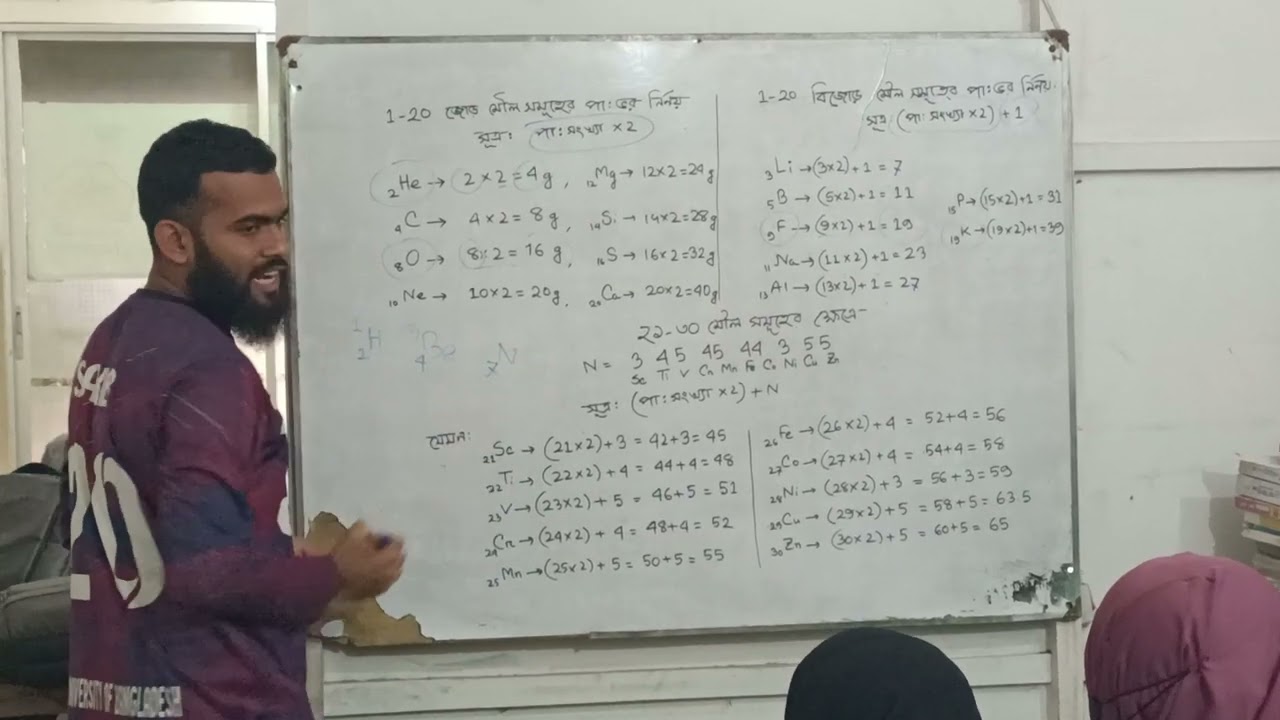 1-20 জোড় মৌল সমূহের পা:ভর নির্নয়
সূত্র: পা: সংখ্যা ×2
₂He → 2 × 2 = 4g, ₁₂Mg → 12×2=24g
₄C → 4×2 = 8g, ₁₄Si → 14×2=28g
₈O → 8×2 = 16 g, ₁₆S → 16×2=32g
₁₀Ne → 10×2= 20g, ₂₀Ca → 20×2=40g
1-20 বিজোড় মৌল সমূহের পা:ভর নির্নয়.
সূত্র: (পা: সংখ্যা ×2) + 1
₃Li → (3×2)+1 = 7
₅B → (5×2)+1 = 11
₉F → (9×2)+1 = 19
₁₁Na → (11×2)+1 = 23
₁₃Al → (13×2)+1 = 27
₁₅P → (15×2)+1 = 31
₁₉K → (19×2)+1=39
1 2 H 4 Be 7 N
২১-৩০ মৌল সমূহের ক্ষেত্রে-
N = 3 45 45 44 3 55
Sc Ti V Cr Mn Fe Co Ni Cu Zn
সূত্র: (পা: সংখ্যা ×2) + N
যেমন:
₂₁Sc → (21×2)+3 = 42+3= 45
₂₂Ti → (22×2)+4 = 44+4= 48
₂₃V → (23×2)+5 = 46+5 = 51
₂₄Cr → (24×2)+4 = 48+4= 52
₂₅Mn → (25×2)+5 = 50+5= 55
₂₆Fe → (26×2)+4 = 52+4= 56
₂₇Co → (27×2)+4 = 54+4= 58
₂₈Ni → (28×2)+3 = 56+3= 59
₂₉Cu → (29×2)+5 = 58+5= 63.5
₃₀Zn → (30×2)+5 = 60+5= 65
20
UNIVERSITY OF BANGLADESH